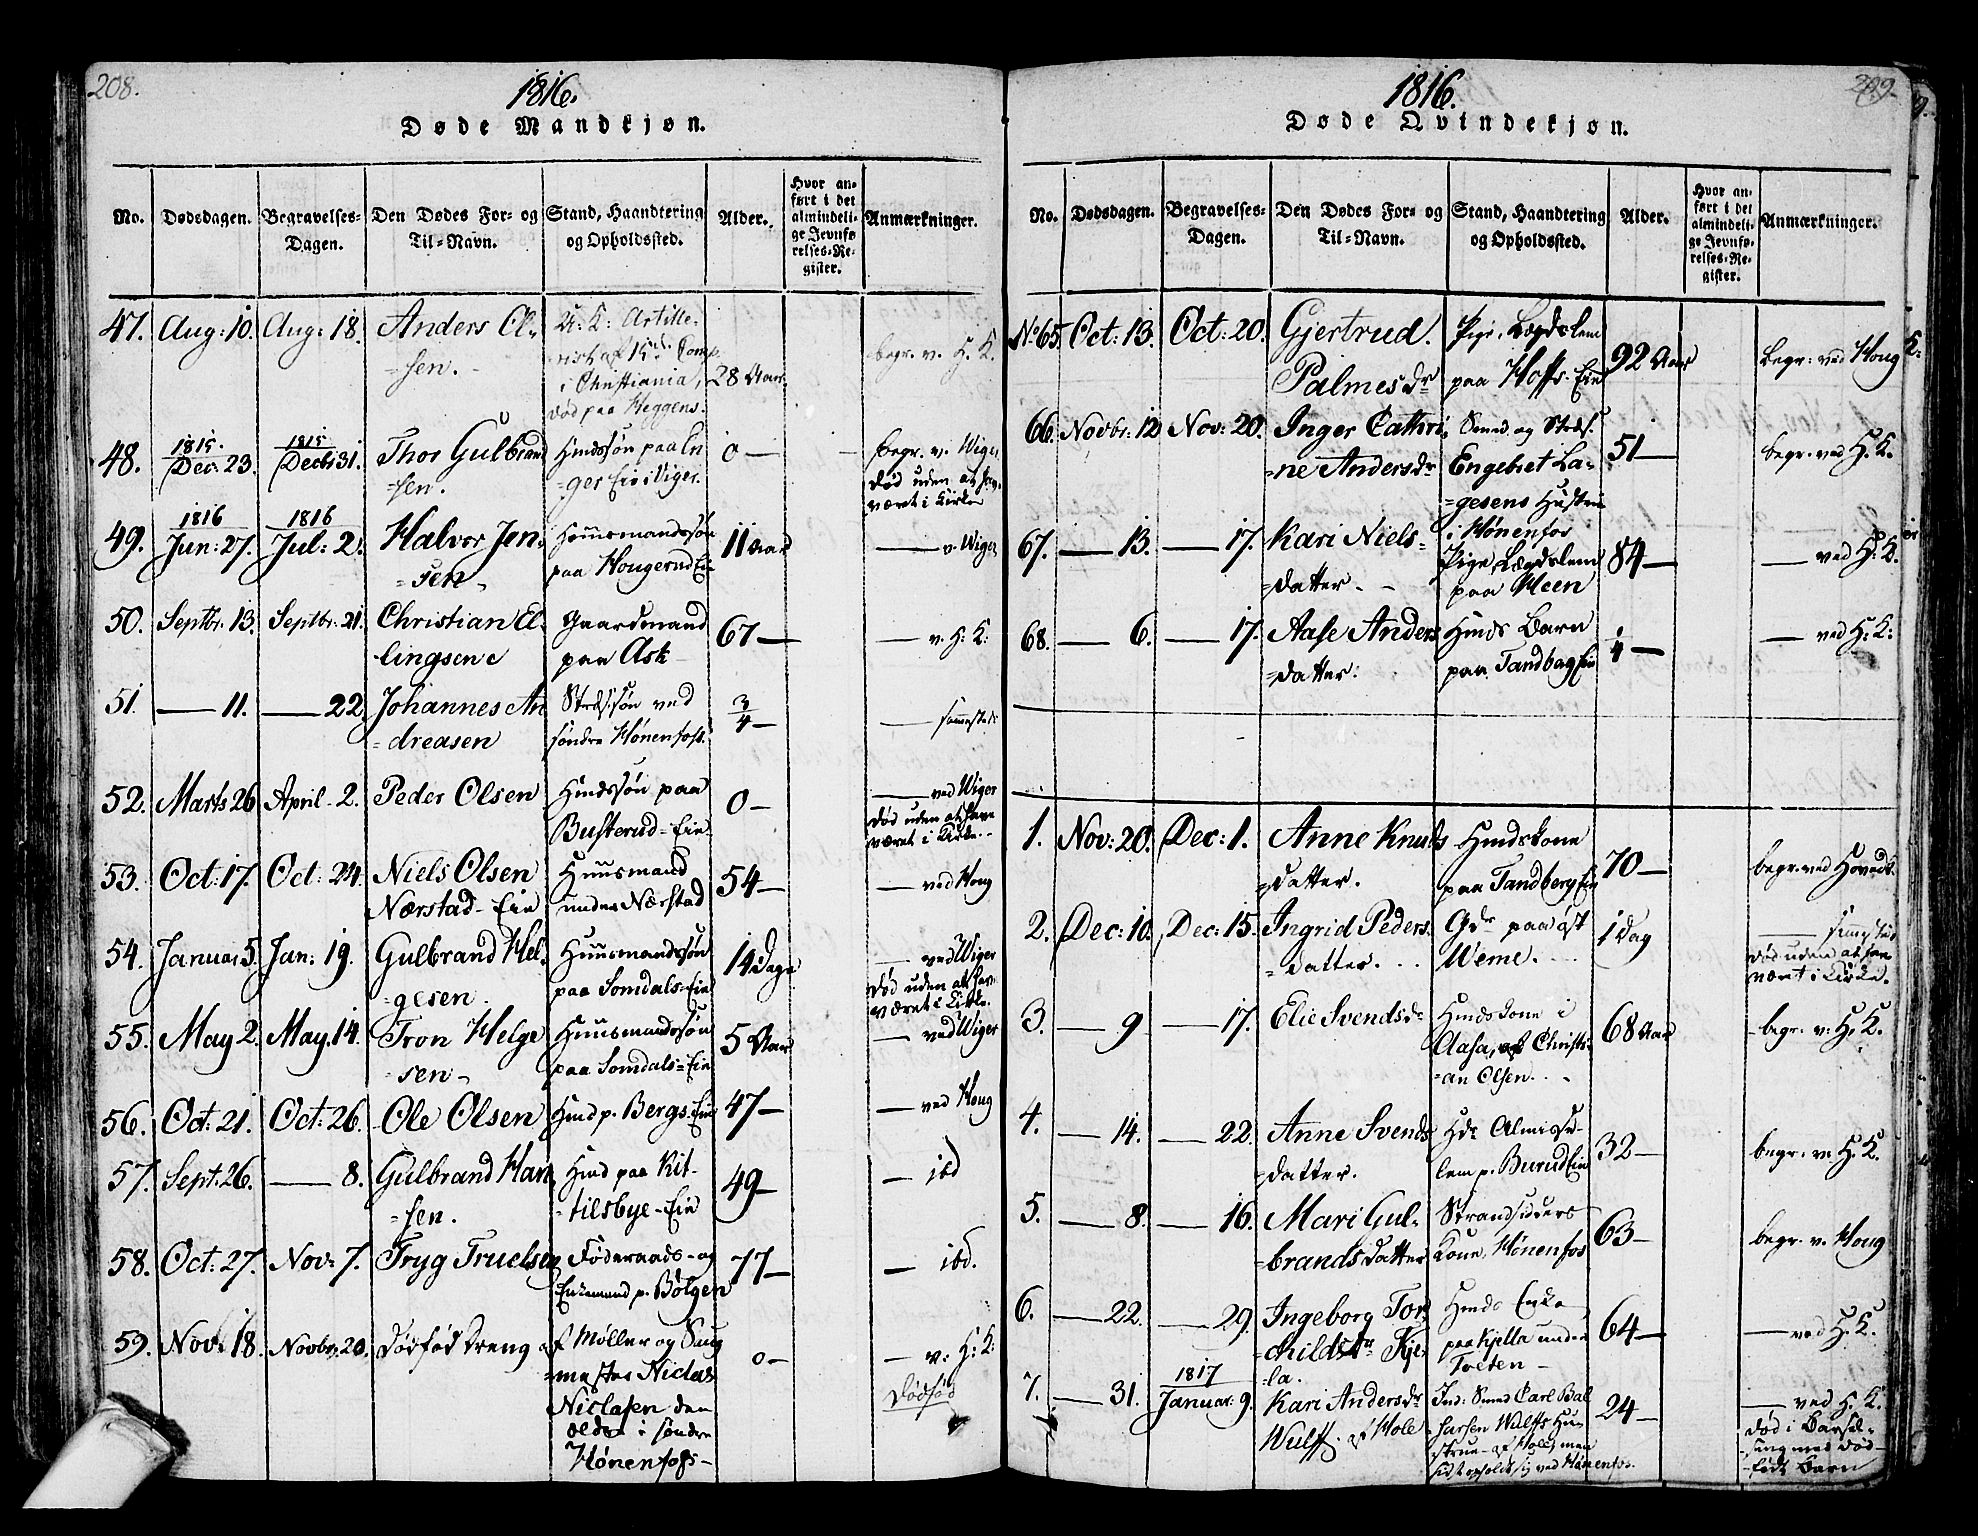 208.
1816.
Døde Mandkjøn.
No. Dødsdagen. Begravelses-Dagen. Den Dødes For- og Til-Navn. Stand, Haandtering og Opholdssted. Alder. Hvor anført i det almindelige Jevnførelses-Register. Anmærkninger.
47. Aug: 10. Aug: 18. Anders Ol-
=sen. Artille-
i Christiania, 28 Aar. begr. v. H. K.
død paa Heggens.
48. 1815. Dec: 23. 1815 Decbr 31. Thor Gulbrand
=sen. Huusmandssøn paa In
=ger Eie i Viger. 0 — begr. v. Wiger
død uden at have
været i Kirke
49. 1816 Jun: 27. 1816 Jul: 2. Halvor Jen-
=sen. Huusmandssøn
paa Hougerud Eie 11 Aar — v. Wiger
50. Septbr. 13. Septbr. 21. Christian El-
lingsen Gaardmand
paa Ask 67 — — v. H: K:
51. — 11. — 22 Johannes An
=dreasen Strdssøn ved
søndre Hønenfoss. 3/4 — — sammesteds
52. Marts 26 April 2. Peder Olsen Hmdssøn paa
Busterud=Eie 0 — — ved Wiger
død uden at have
været i Kirke.
53. Oct: 17. Oct: 24. Niels Olsen
Nærstad-Eie Huusmand
under Nærstad 54 — — ved Houg
54. Januar 5. Jan: 19. Gulbrand Hel-
=gesen. Huusmandssøn
paa Somdals=Eie 14 Dage — ved Wiger
død uden at have
været i Kirke.
55. May 2. May. 14. Tron Helge
=sen. Huusmandssøn
paa Somdals=Eie 5 Aar — ved Wiger
56. Oct: 21. Oct: 26. Ole Olsen Hmd p. Bergs Eie 47 — — ved Houg
57. Sept. 26. — 8. Gulbrand Han
=sen. Hmd paa Kit-
=tilsbye-Eie 49 — — ibd
58. Oct: 27. Nov: 7. Tryg Truelsen Føderaads- og
Enkemand p. Bølgen 77 — — ibd.
59. Nov: 18. Novbr. 20. Dødfød Dreng af Møller og Saug
=mester Niclas
Niclasen den
ældre i søndre
Hønenfoss — 0 — — v. H: K:
dødfød
209.
1816.
Døde Qvindekjøn.
No. Dødsdagen. Begravelses-Dagen. Den Dødes For- og Til-Navn. Stand, Haandtering og Opholdssted. Alder. Hvor anført i det almindelige Jevnførelses-Register. Anmærkninger.
No 65. Oct: 13. Oct: 20. Gjertrud
Palmesdr. Pige, Lægdslem
paa Hoffs-Eie 92 Aar begr: ved Houg K:
66. Novbr: 12 Nov: 20. Inger Cathri-
=ne Andersdr Smed og Strds.
Engebret La-
=gesens Hustru
i Hønenfos 51 — begr. ved H. K.
67. — 13. — 17. Kari Niels-
=datter. Pige, Lægdslem
paa Meen 84 — — ved H: K.
68. — 6. — 17. Aase Anders
=datter. Hmds Barn
paa Tandberg Eie 1/4 — — ved H: K:
1. Nov: 20. Dec: 1. Anne Knuds
=datter. Hmdskone
paa Tandberg Eie 70 — begr. ved Hovedk.
2. Dec: 10. Dec: 15. Ingrid Peders
=datter. Gdr paa Øst
Weme. 1 Dag —
død uden at have
været i Kirke.
3. — 9 — 17. Elie Svendsdr Hmds kone i
Aasa, af Christi-
=an Olsen. 68 Aar begr. v: H. K.
4. — 14. — 22. Anne Svends
=datter. Almisse-
lem p. Burud Eie 32 — begr. v. H. K.
5. — 8. — 16. Mari Gul-
=brandsdatter Strandsidders
Kone, Hønenfos 63 — begr. v. Houg
6. — 22. — 29. Ingeborg Tor
=childsdr Kje-
=la. Hmds Enke
paa Kjella under
Tolten — 64 — — ved H. K.
7. — 31. 1817 Januar. 9. Kari Andersdr
Wulff. af Hole Ind: Smed Carl Bal
=tarsen Wulffs Hus
=true af Hole, men
sidst opholdt sig ved Hønenfos. 24 — — ved H. K.
død i Barsel-
=seng med død-
=født Barn